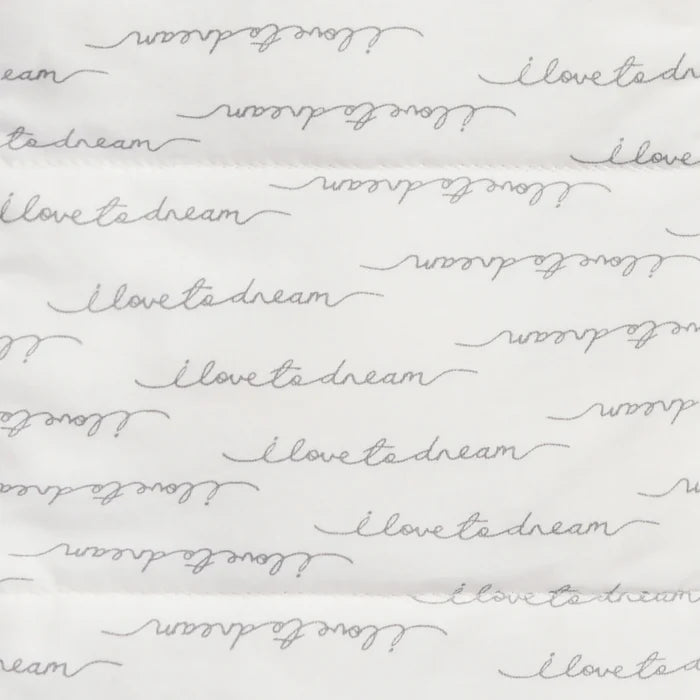 i love to dream
eam
i love to dr
i love to dream
to dream
i love
i love to dream
i love to dream
i love to dream
i love to dream
ve to dream
i l
i love to dream
dream
i love to
i love to dream
i love to drea
i love to dream
i love to dream
i love to dream
i love to dream
ream
i love to d